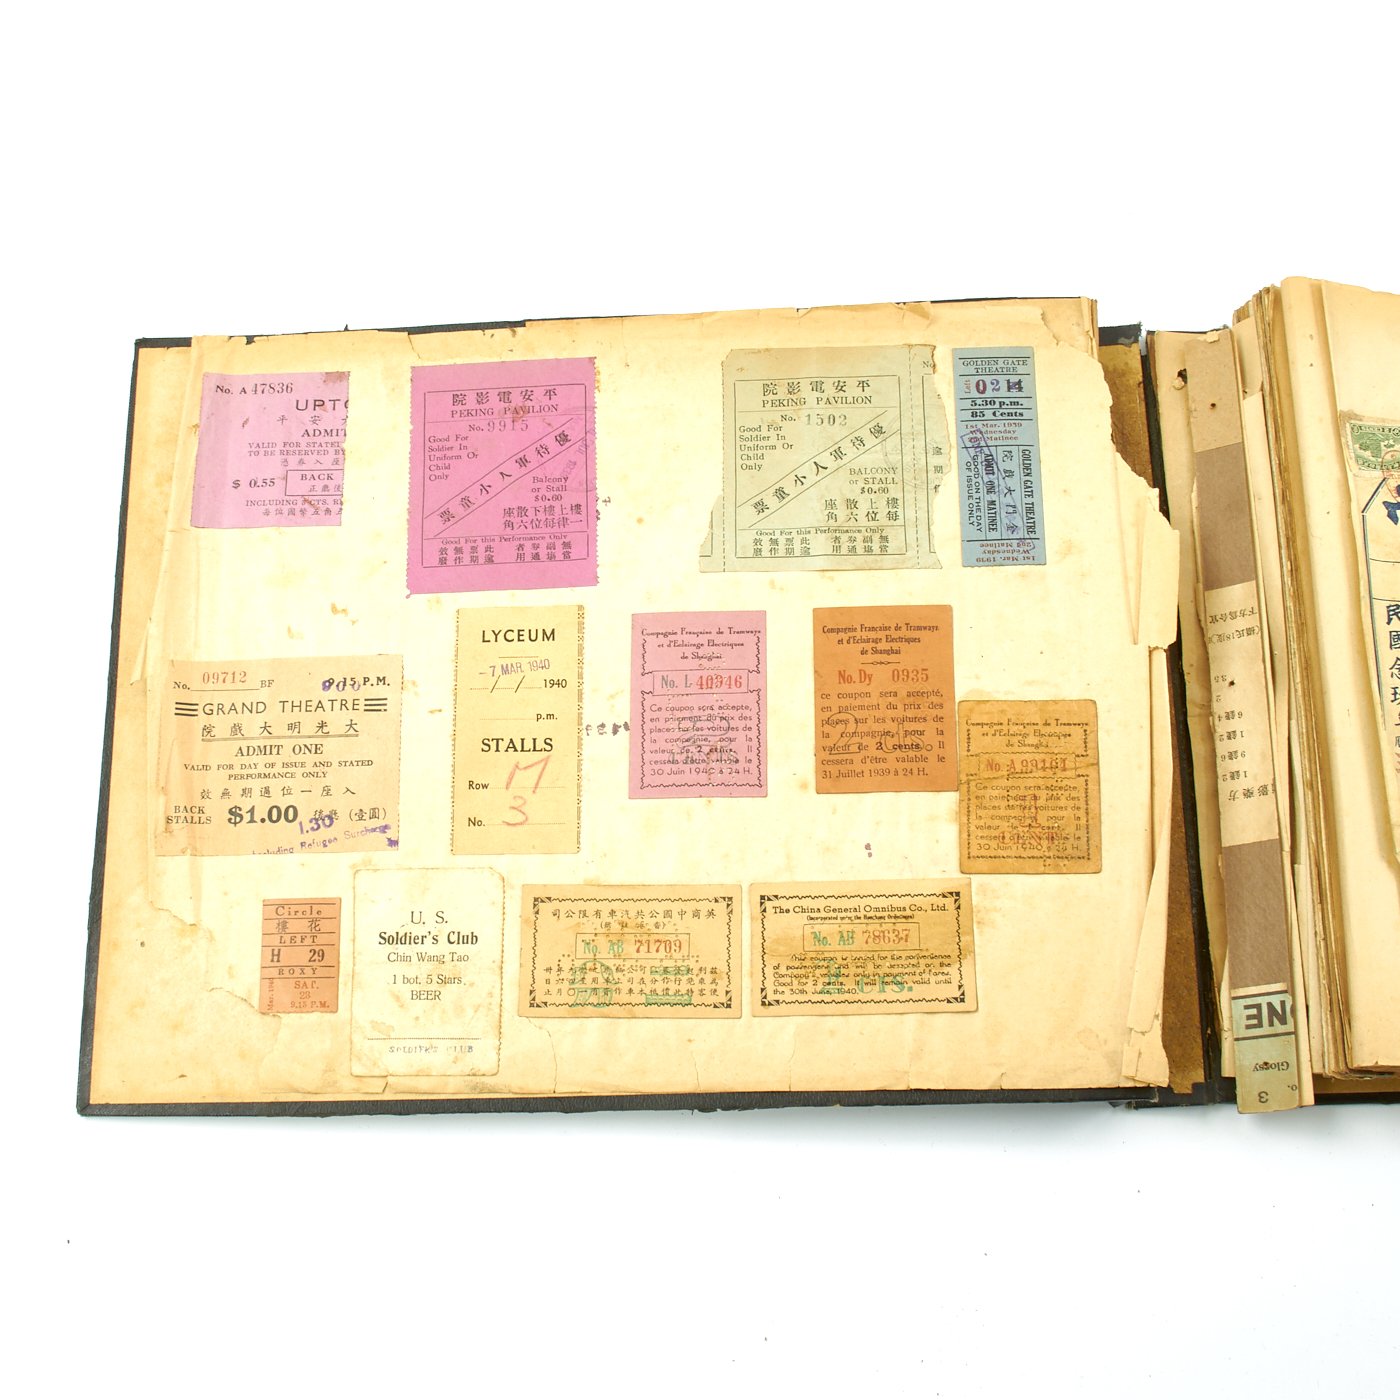 No. A 47836
UPTO
平 安 大
ADMIT
VALID FOR STATED
TO BE RESERVED BY
憑 券 入 座
$ 0.55
BACK
正廳後
INCLUDING 5 CTS. R
院影電安平
PEKING PAVILION
No. 9915
Good For
Soldier In
Uniform Or
Child
Only
優待軍人小童票
Balcony
or Stall
$0.60
座散下樓上樓
角六位每律一
Good For this Performance Only
效無票此 者券副無
廢作期逾 用通協當
院影電安平
PEKING PAVILION
No. 1502
Good For
Soldier In
Uniform Or
Child
Only
優待軍人小童票
BALCONY
or STALL
$0.60
座散上樓
角六位每
Good For this Performance Only
效無票此 者券副無
廢作期逾 用通協當
No
逾
期
作
GOLDEN GATE
THEATRE
Left 0214
5.30 p.m.
85 Cents
1st Mar. 1939
Wednesday
2nd Matinee
GOLDEN GATE THEATRE
院戲大門金
ADMIT ONE MATINEE
GOOD ON THE DAY
OF ISSUE ONLY
2nd Matinee
Wednesday
1st Mar. 1939
No. 09712 BF 9.15 P.M.
GRAND THEATRE
院戲大明光大
ADMIT ONE
VALID FOR DAY OF ISSUE AND STATED
PERFORMANCE ONLY
效無期過位一座入
BACK
STALLS $1.00 後廳 (壹圓)
1.30
Including Refugee Surcharge
LYCEUM
-7 MAR. 1940
.../.../ 1940
p.m.
STALLS
Row M
No. 3
Compagnie Française de Tramways
et d'Eclairage Electriques
de Shanghai
No. L 40946
Ce coupon sera accepte,
en paiement du prix des
places sur les voitures de
la compagnie, pour la
valeur de 2 cents. Il
cessera d'être valable le
30 Juin 1940 à 24 H.
Compagnie Française de Tramways
et d'Eclairage Electriques
de Shanghai
No. Dy 0935
ce coupon sera accepté,
en paiement du prix des
places sur les voitures de
la compagnie, pour la
valeur de 2 cents. Il
cessera d'être valable le
31 Juillet 1939 à 24 H.
Compagnie Française de Tramways
et d'Eclairage Electriques
de Shanghai
No. A 99101
Ce coupon sera accepte,
en paiement du prix des
places sur les voitures de
la compagnie pour la
valeur de 1 cent. Il
cessera d'être valable le
30 Juin 1940 à 24 H.
Circle
樓 花
LEFT
H 29
ROXY
SAT.
23
9.15 P.M.
U. S.
Soldier's Club
Chin Wang Tao
1 bot. 5 Stars
BEER
SOLDIER'S CLUB
司公限有車汽共公國中商英
No. AB 71709
The China General Omnibus Co., Ltd.
(Incorporated under the Hongkong Ordinances)
No. AB 78637
This coupon is issued for the convenience
of passengers and will be accepted on the
Company's vehicles only in payment of fares.
Good for 2 cents. It will remain valid until
the 30th June, 1940.
2 cts.
民
國
念
NE
Glossy
3